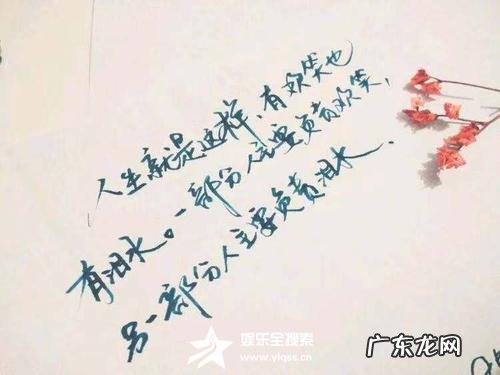 人生就是这样,有欢笑也
有泪水。一部分人主要负责欢笑,
另一部分人主要负责泪水.
娱乐全搜索
www.ylqss.cn
广东龙网